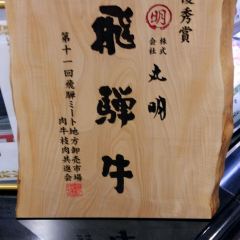 優秀賞
明
株式会社 丸明
飛騨牛
第十一回飛騨ミート地方卸売市場
肉牛枝肉共進会